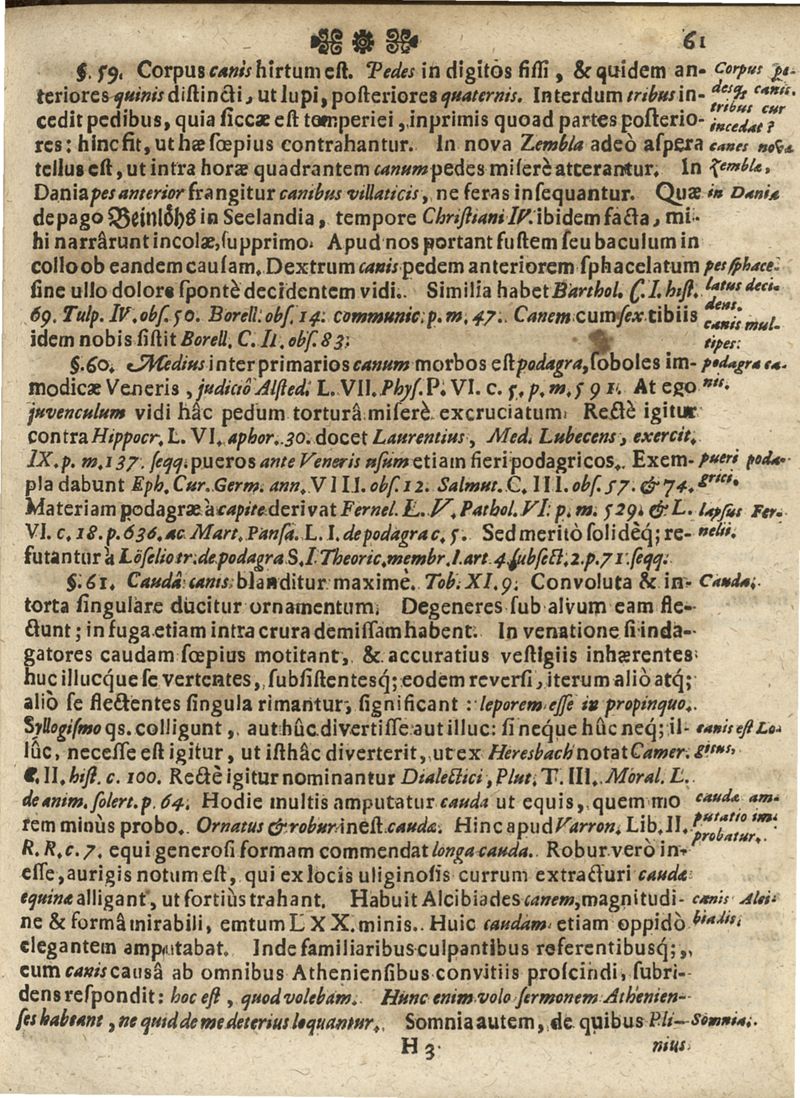 61
§. 59. Corpus canis hirtum est. Pedes in digitos fissi, & quidem an- Corpus pe-
teriores quinis distincti, ut lupi, posteriores quaternis. Interdum tribus in- desq; canis.
cedit pedibus, quia siccæ est temperiei, inprimis quoad partes posterio- tribus cur incedat?
res: hinc fit, ut hæ sœpius contrahantur. In nova Zembla adeò aspera canes nova
tellus est, ut intra horæ quadrantem canum pedes miserè atterantur. In Zembla,
Dania pes anterior frangitur canibus villaticis, ne feras insequantur. Quæ in Dania
de pago Beinlöhs in Seelandia, tempore Christiani IV. ibidem facta, mi-
hi narrârunt incolæ, supprimo. Apud nos portant fustem seu baculum in
collo ob eandem causam. Dextrum canis pedem anteriorem sphacelatum pes sphace-
sine ullo dolore spontè decidentem vidi. Similia habet Barthol. C. I. hist. latus deci-
69. Tulp. IV. obs. 50. Borell. obs. 14. communic. p. m. 47. Canem cum sex tibiis dens. canis mul-
idem nobis sistit Borell. C. II. obs. 83. tipes.
§. 60. Medius inter primarios canum morbos est podagra, soboles im- podagra ca-
modicæ Veneris, judiciô Alsted. L. VII. Phys. P. VI. c. 5. p. m. 591. At ego nis.
juvenculum vidi hâc pedum torturâ miserè excruciatum. Rectè igitur
contra Hippocr. L. VI. aphor. 30. docet Laurentius, Med. Lubecens, exercit.
IX. p. m. 137. seqq. pueros ante Veneris usum etiam fieri podagricos. Exem- pueri poda-
pla dabunt Eph. Cur. Germ. ann. VIII. obs. 12. Salmut. C. III. obs. 57. & 74. grici.
Materiam podagræ à capite derivat Fernel. L. V. Pathol. VI. p. m. 529. & L. lapsus Fer-
VI. c. 18. p. 636. ac Mart. Pansa. L. I. de podagra c. 5. Sed meritò solidèq; re- nelii.
futantur à Löselio tr. de podagra S. I Theoric. membr. I. art. 4 subsect. 2. p. 71. seqq.
§. 61. Caudâ canis blanditur maxime. Tob. XI. 9. Convoluta & in- Cauda.
torta singulare ducitur ornamentum. Degeneres sub alvum eam fle-
ctunt; in fuga etiam intra crura demissam habent. In venatione si inda-
gatores caudam sœpius motitant, & accuratius vestigiis inhærentes
huc illucque se vertentes, subsistentesq; eodem reversi, iterum aliò atq;
aliò se flectentes singula rimantur, significant: leporem esse in propinquo.
Syllogismo qs. colligunt, aut hûc divertisse aut illuc: si neque hûc neq; il- canis est Lo-
lûc, necesse est igitur, ut isthâc diverterit, ut ex Heresbach notat Camer. gicus,
C. II. hist. c. 100. Rectè igitur nominantur Dialectici, Plut. T. III. Moral. L.
de anim. solert. p. 64. Hodie multis amputatur cauda ut equis, quem mo cauda am-
rem minùs probo. Ornatus & robur inest cauda. Hinc apud Varron. Lib. II. putatio im-
R. R. c. 7. equi generosi formam commendat longa cauda. Robur verò in- probatur.
esse, aurigis notum est, qui ex locis uliginosis currum extracturi cauda
equina alligant, ut fortiùs trahant. Habuit Alcibiades canem, magnitudi- canis Alci-
ne & formâ mirabili, emtum LXX. minis. Huic caudam etiam oppidò biadis.
elegantem amputabat. Inde familiaribus culpantibus referentibusq;,
eum canis causâ ab omnibus Atheniensibus convitiis proscindi, subri-
dens respondit: hoc est, quod volebam. Hunc enim volo sermonem Athenien-
ses habeant, ne quid de me deterius loquantur. Somnia autem, de quibus Pli- Somnia.
H 3 nius